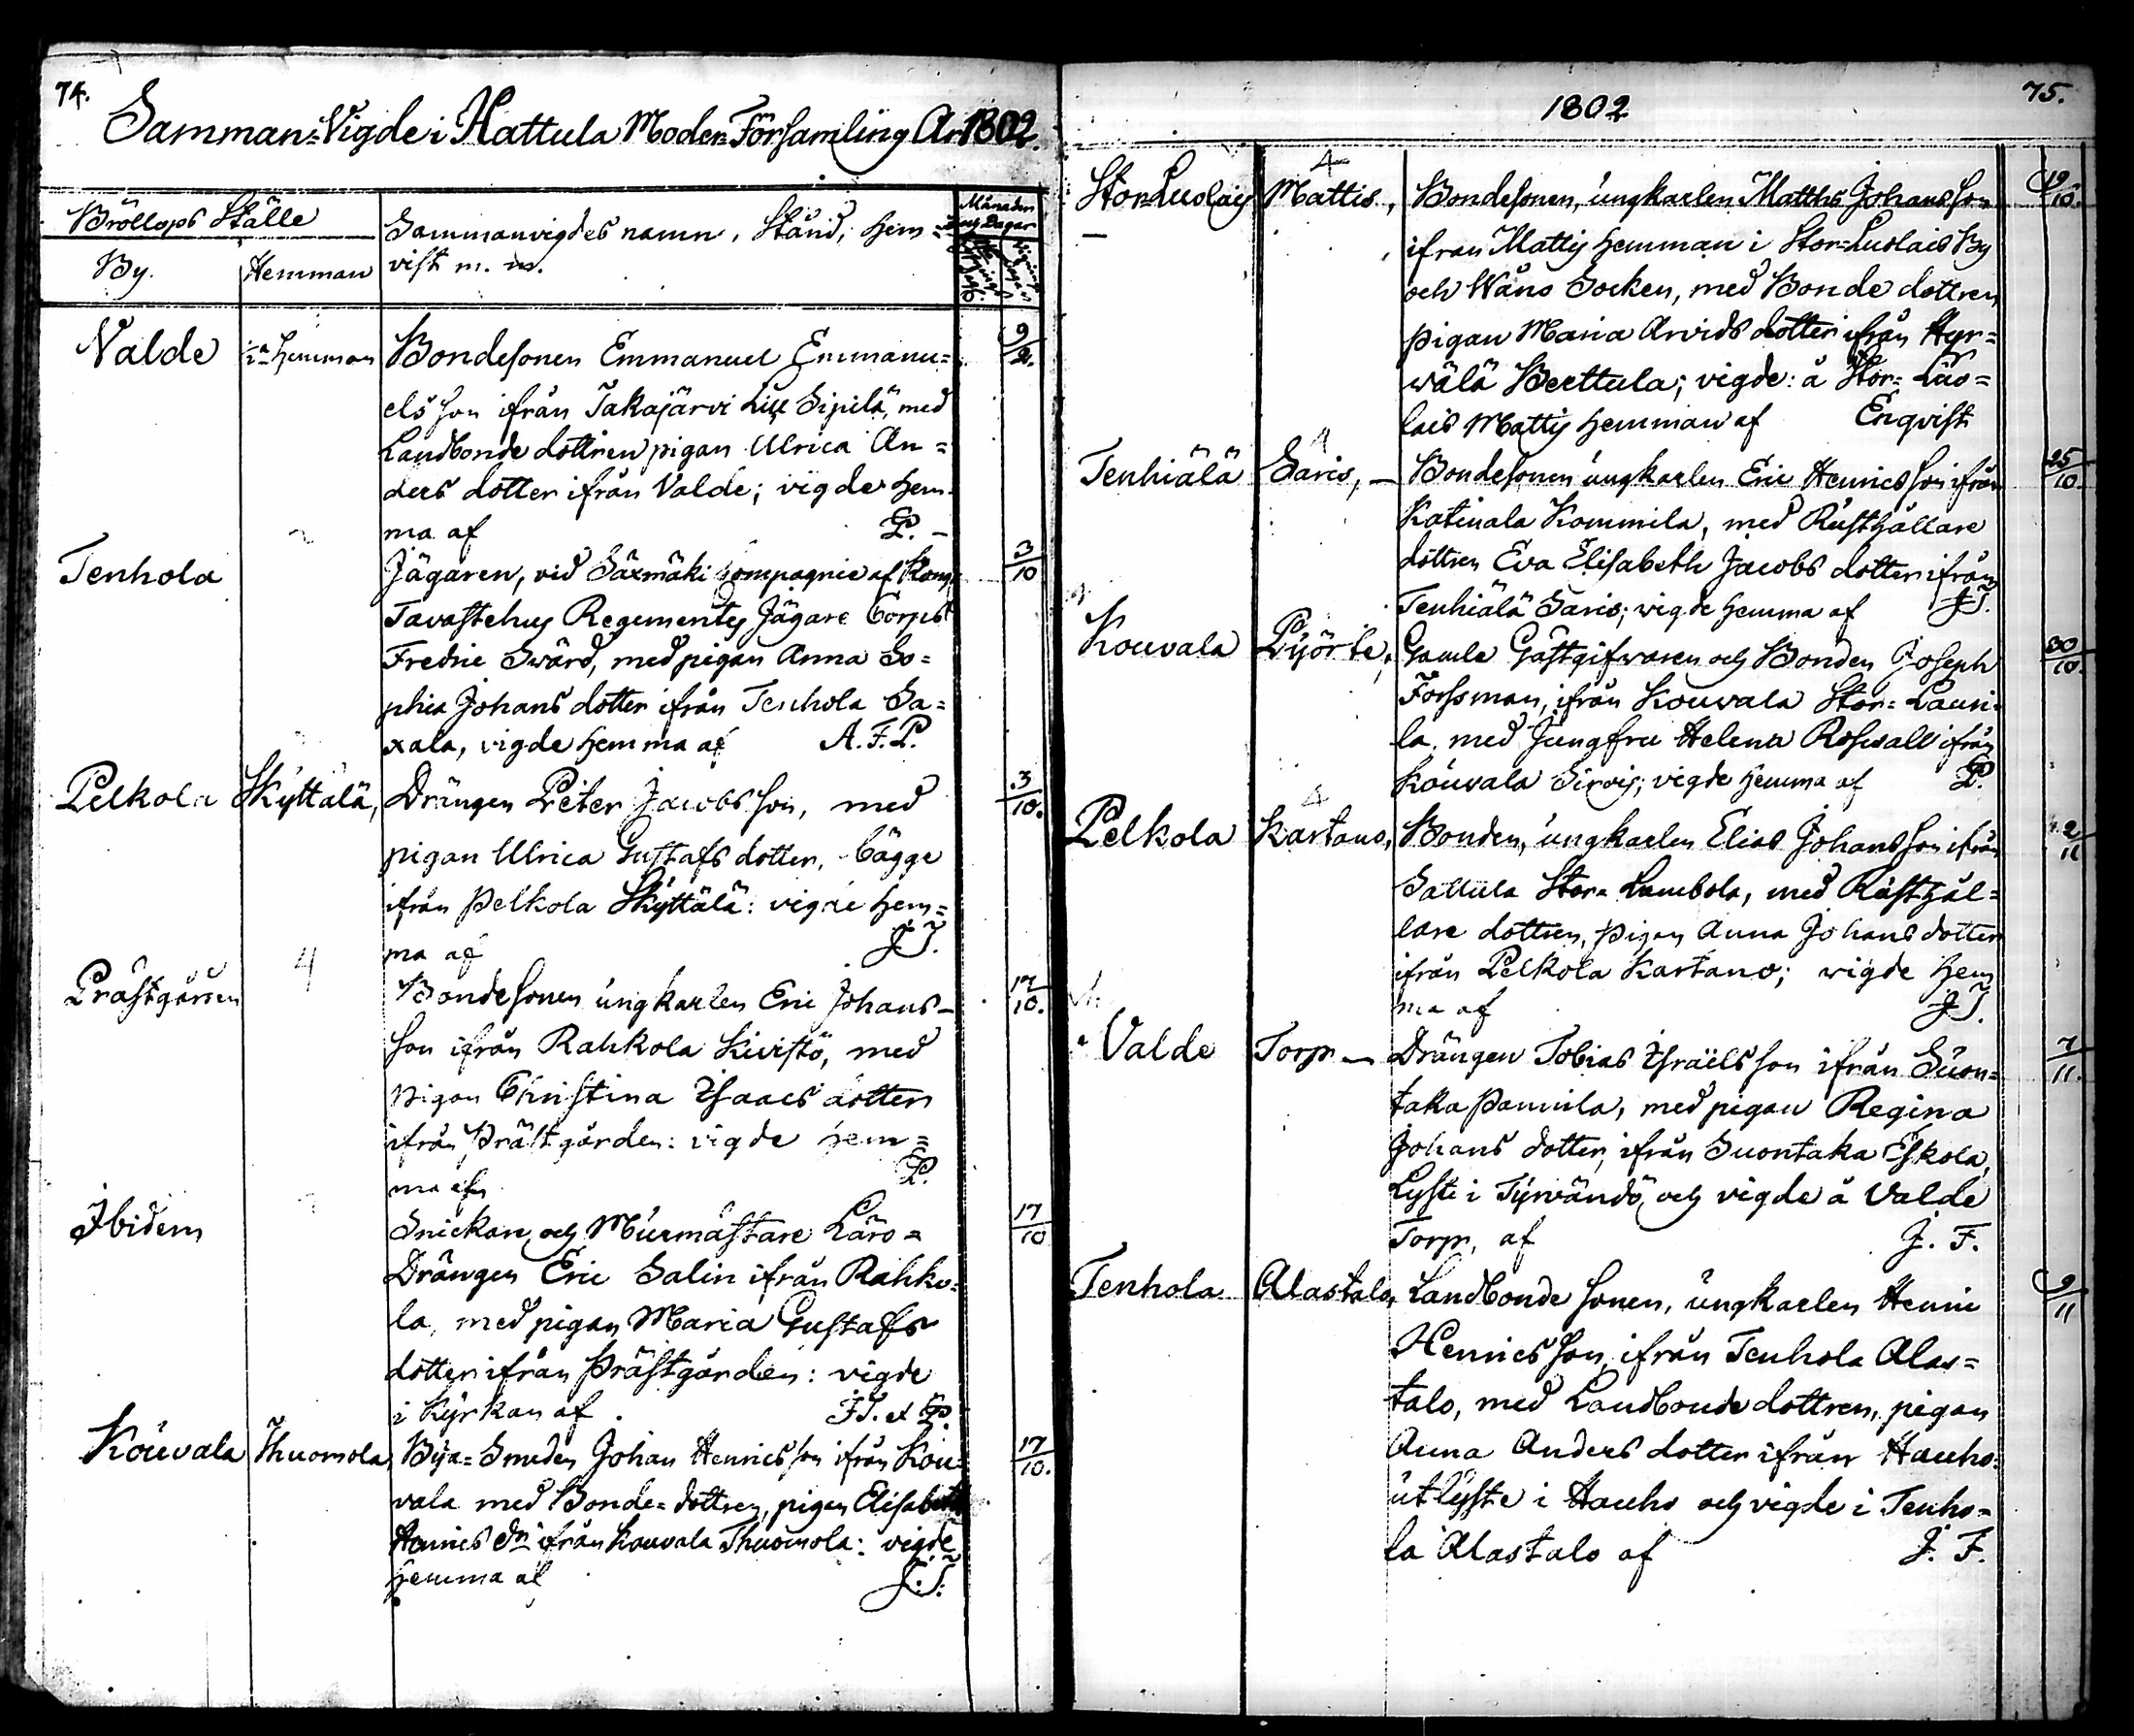 74.
Samman=Vigde i Hattula Moder=Församling År 1802.
Bröllops Ställe
By. Hemman
Sammanvigdes namn, Stånd, hem=
vist m. m.
Månader
och Dagar
Valde hemman Bondesonen Emmanuel Emmanu= 9/2.
els son ifrån Takajärvi Sipilä, med
Landbonde dottren pigan Ulrica An=
ders dotter ifrån Valde; vigde hem
ma af P. –
Tenhola Jägaren, vid Säxmäki Compagnie af Kong. 3/10
Tavastehus Regementes Jägare Corps
Fredric Swärd, med pigan Anna So=
phia Johans dotter ifrån Tenhola Sa=
xala, vigde hemma af A. F. P.
Pelkola Skyttälä, Drängen Peter Jacobs son, med 3/10.
pigan Ulrica Gustafs dotter, bägge
ifrån Pelkola Skyttälä: vigde hem=
ma af
Prästgården 4 Bondesonen ungkarlen Eric Johans– 17/10.
son ifrån Rahkola Kivistö, med
pigan Christina Isaacs dotter
ifrån Prästgården: vigde hem=
ma af P.
Ibidem Snickare och Murmästare Läro= 17/10
Drängen Eric Salin ifrån Rahko=
la, med pigan Maria Gustafs
dotter ifrån Prästgården: vigde
i Kyrkan af
Kouvala Thuomola, Bya=Smeden Johan Henrics son ifrån Kou= 17/10.
vala med Bonde=dottren, pigan Elisabeth
Henrics dr ifrån Kouvala Thuomola: vigde
hemma af
75.
1802
Stor=Luolais Mattis, Bondesonen, ungkarlen Matths Johansson 19/10.
ifrån Mattis hemman i Stor=Luolais By
och Wånå Socken, med Bonde dottren
pigan Maria Arvids dotter ifrån Hyr=
wälä Berttula; vigde: å Stor=Luo=
lais Mattis hemman af Enqvist
Tenhiälä Saris, – Bondesonen ungkarlen Eric Henrics son ifrån 25/10.
Katinala Kommila, med Rusthållare
dottren Eva Elisabeth Jacobs dotter ifrån
Tenhiälä Saris; vigde hemma af
Kouvala Pyörte, Gamle Gästgifvaren och Bonden Joseph 30/10.
Forssman, ifrån Kouvala Stor=Lauri=
la, med Jungfru Helena ifrån
Kouvala Sirois; vigde hemma af P.
Pelkola Kartano, Bonden, ungkarlen Elias Johans son ifrån 2/11
Sattula Stor=Lambola, med Rusthål=
lare dottren, pigan Anna Johans dotter
ifrån Pelkola Kartano; vigde hem
ma af
Valde Torp – Drängen Tobias Israëls son ifrån Suon= 7/11.
taka Pannila, med pigan Regina
Johans dotter, ifrån Suontaka Eskola,
Lyste i Tyrvändö, och vigde å Valde
Torp, af J. F.
Tenhola Alastalo, Landbonde sonen, ungkarlen Henric 9/11
Henrics son, ifrån Tenhola Alas=
talo, med Landbonde dottren, pigan
Anna Anders dotter ifrån Hauho:
utlyste i Hauho och vigde i Tenho=
la Alastalo af J. F.